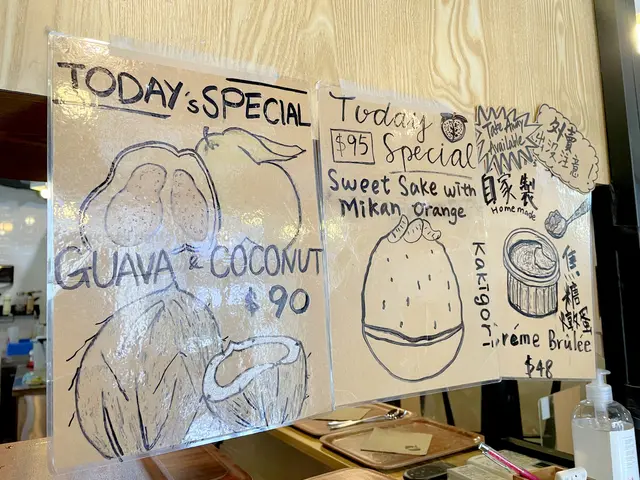 TODAY's SPECIAL
GUAVA & COCONUT
$90
Today
$95 Special
Sweet Sake with
Mikan Orange
Kakigori
Take Away
Available
外賣
出沒注意
自家製
Homemade
焦糖燉蛋
réme Brûlée
$48